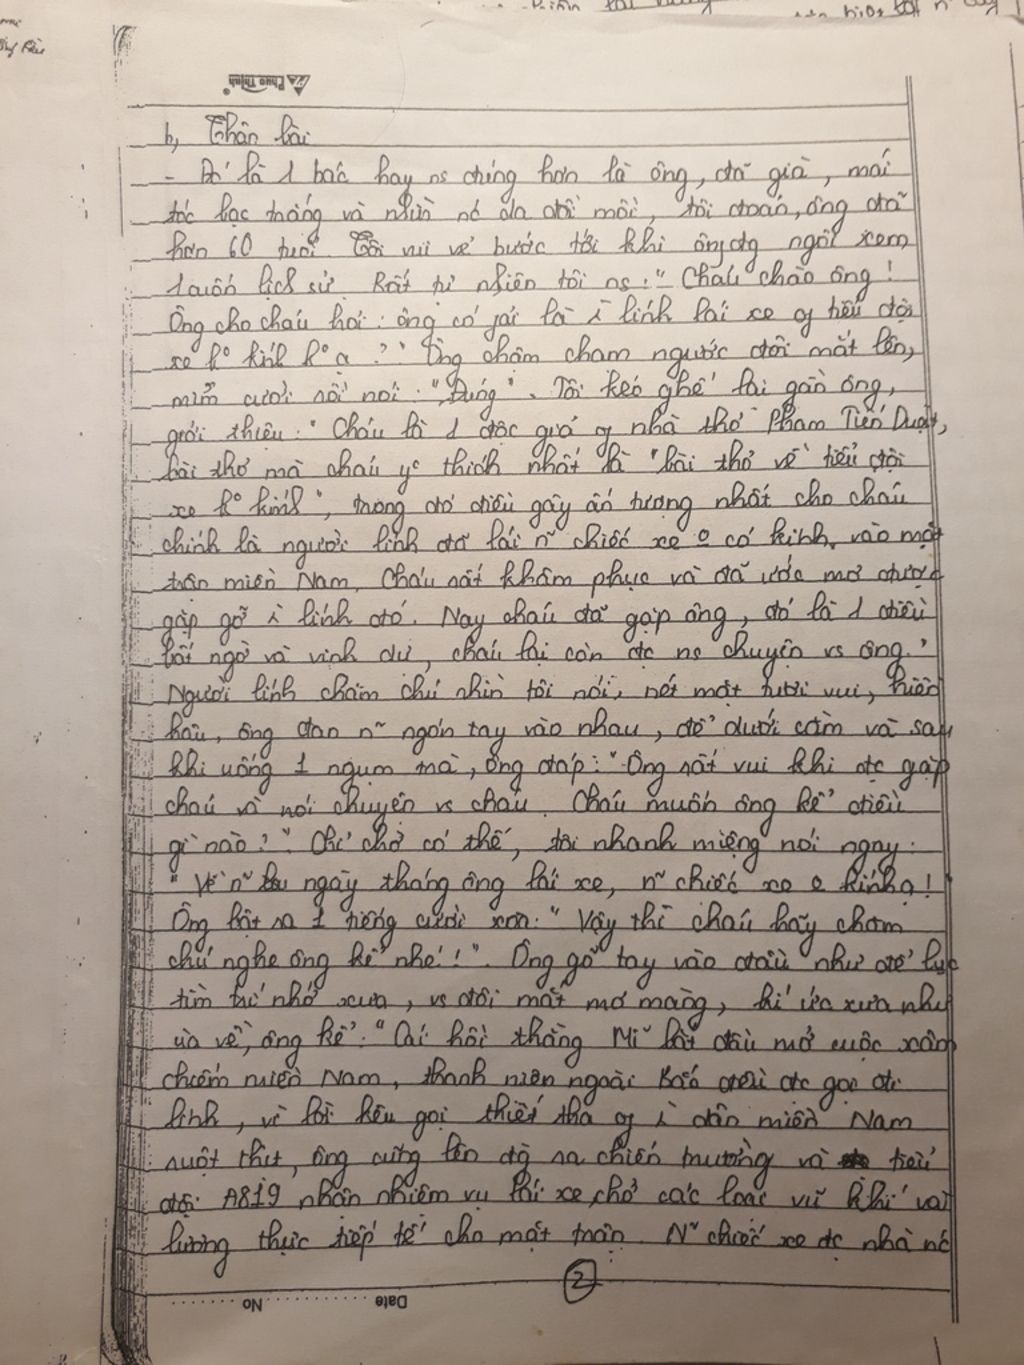 Phúc Thịnh
b, Thân bài
- Đó là 1 bác hay ns đúng hơn là ông, đã già, mái
tóc bạc trắng và nhìn nó đa đồi mồi, tôi đoán, ông đã
hơn 60 tuổi. Tôi vui vẻ bước tới khi ông đg ngồi xem
1 cuốn lịch sử Rất tự nhiên tôi ns: " Cháu chào ông!
Ông cho cháu hỏi: ông có fải là lính lái xe tiểu đội
xe kº kính kº ạ?" Ông chậm chạm ngước đôi mắt lên,
mỉm cười rồi nói: "Đúng". Tôi kéo ghế lại gần ông,
giới thiệu: " Cháu là 1 độc giả nhà thơ Phạm Tiến Duật,
bài thơ mà cháu yº thích nhất là "bài thơ về tiểu đội
xe kº kính", trong đó điều gây ấn tượng nhất cho cháu
chính là người lính đã lái n~ chiếc xe 0 có kính, vào mặt
trận miền Nam. Cháu rất khâm phục và đã ước mơ được
gặp gỡ lính đó. Nay cháu đã gặp ông, đó là 1 điều
bất ngờ và vinh dự, cháu lại còn đc ns chuyện vs ông."
Người lính chăm chú nhìn tôi nói, nét mặt tươi vui, hiền
hậu, ông đan n~ ngón tay vào nhau, để dưới cằm và sau
khi uống 1 ngụm trà, ông đáp: " Ông rất vui khi đc gặp
cháu và nói chuyện vs cháu. Cháu muốn ông kể điều
gì nào?" Chỉ chờ có thế, tôi nhanh miệng nói ngay:
" Về n~ ngày tháng ông lái xe, n~ chiếc xe 0 kính ạ!
Ông bật ra 1 tiếng cười xòa: " Vậy thì cháu hãy chăm
chú nghe ông kể nhé!". Ông gõ tay vào đầu như để lục
tìm trí nhớ xưa, vs đôi mắt mơ màng, kí ức xưa như
ùa về, ông kể: " Cái hồi thằng Mĩ bắt đầu mở cuộc xâm
chiếm miền Nam, thanh niên ngoài Bắc đều đc gọi đi
lính, vì lời kêu gọi thiết tha dân miền Nam
ruột thịt, ông cũng lên đg ra chiến trường và tiểu
đội A819 nhận nhiệm vụ lái xe, chở các loại vũ khí và
lương thực tiếp tế cho mặt trận. N~ chiếc xe đc nhà nc
2
Date No